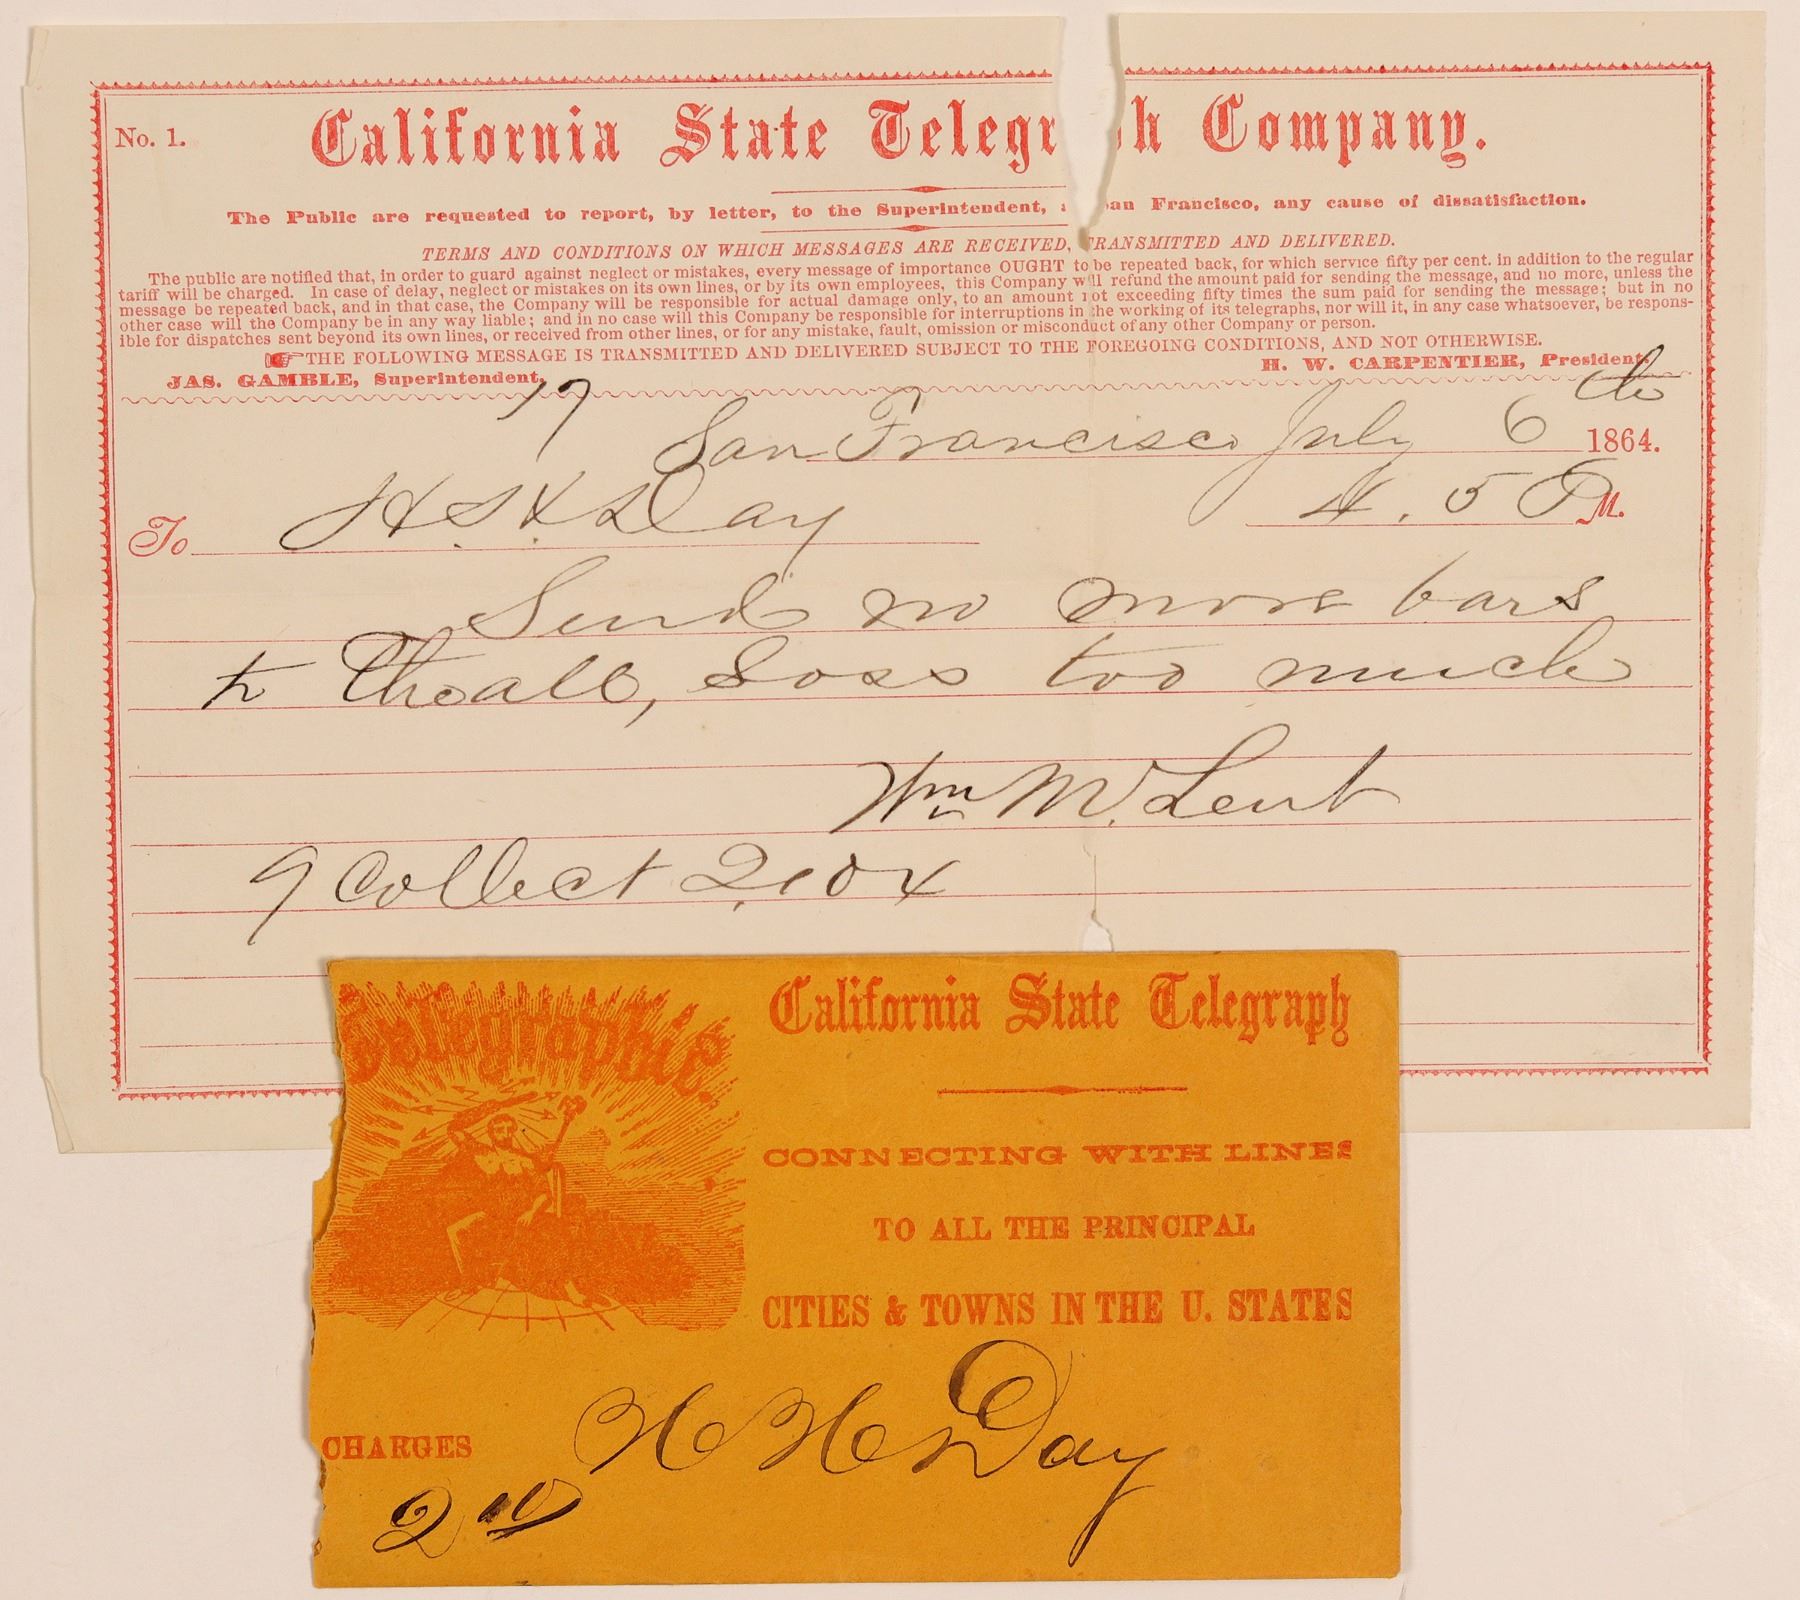 No. 1.
California State Telegr h Company.
The Public are requested to report, by letter, to the Superintendent, an Francisco, any cause of dissatisfaction.
TERMS AND CONDITIONS ON WHICH MESSAGES ARE RECEIVED, TRANSMITTED AND DELIVERED.
The public are notified that, in order to guard against neglect or mistakes, every message of importance OUGHT to be repeated back, for which service fifty per cent. in addition to the regular
tariff will be charged. In case of delay, neglect or mistakes on its own lines, or by its own employees, this Company will refund the amount paid for sending the message, and no more, unless the
message be repeated back, and in that case, the Company will be responsible for actual damage only, to an amount not exceeding fifty times the sum paid for sending the message; but in no
other case will the Company be in any way liable; and in no case will this Company be responsible for interruptions in the working of its telegraphs, nor will it, in any case whatsoever, be respons-
ible for dispatches sent beyond its own lines, or received from other lines, or for any mistake, fault, omission or misconduct of any other Company or person.
THE FOLLOWING MESSAGE IS TRANSMITTED AND DELIVERED SUBJECT TO THE FOREGOING CONDITIONS, AND NOT OTHERWISE.
JAS. GAMBLE, Superintendent, H. W. CARPENTIER, President.
17 San Francisco July 6th 1864.
To Day 4.5 P M.
Send no more bars
to Theall, Loss too much
Wm M. Lent
9 Collect 2.10
Telegraphic.
California State Telegraph
CONNECTING WITH LINES
TO ALL THE PRINCIPAL
CITIES & TOWNS IN THE U. STATES
H H Day
CHARGES
2 10